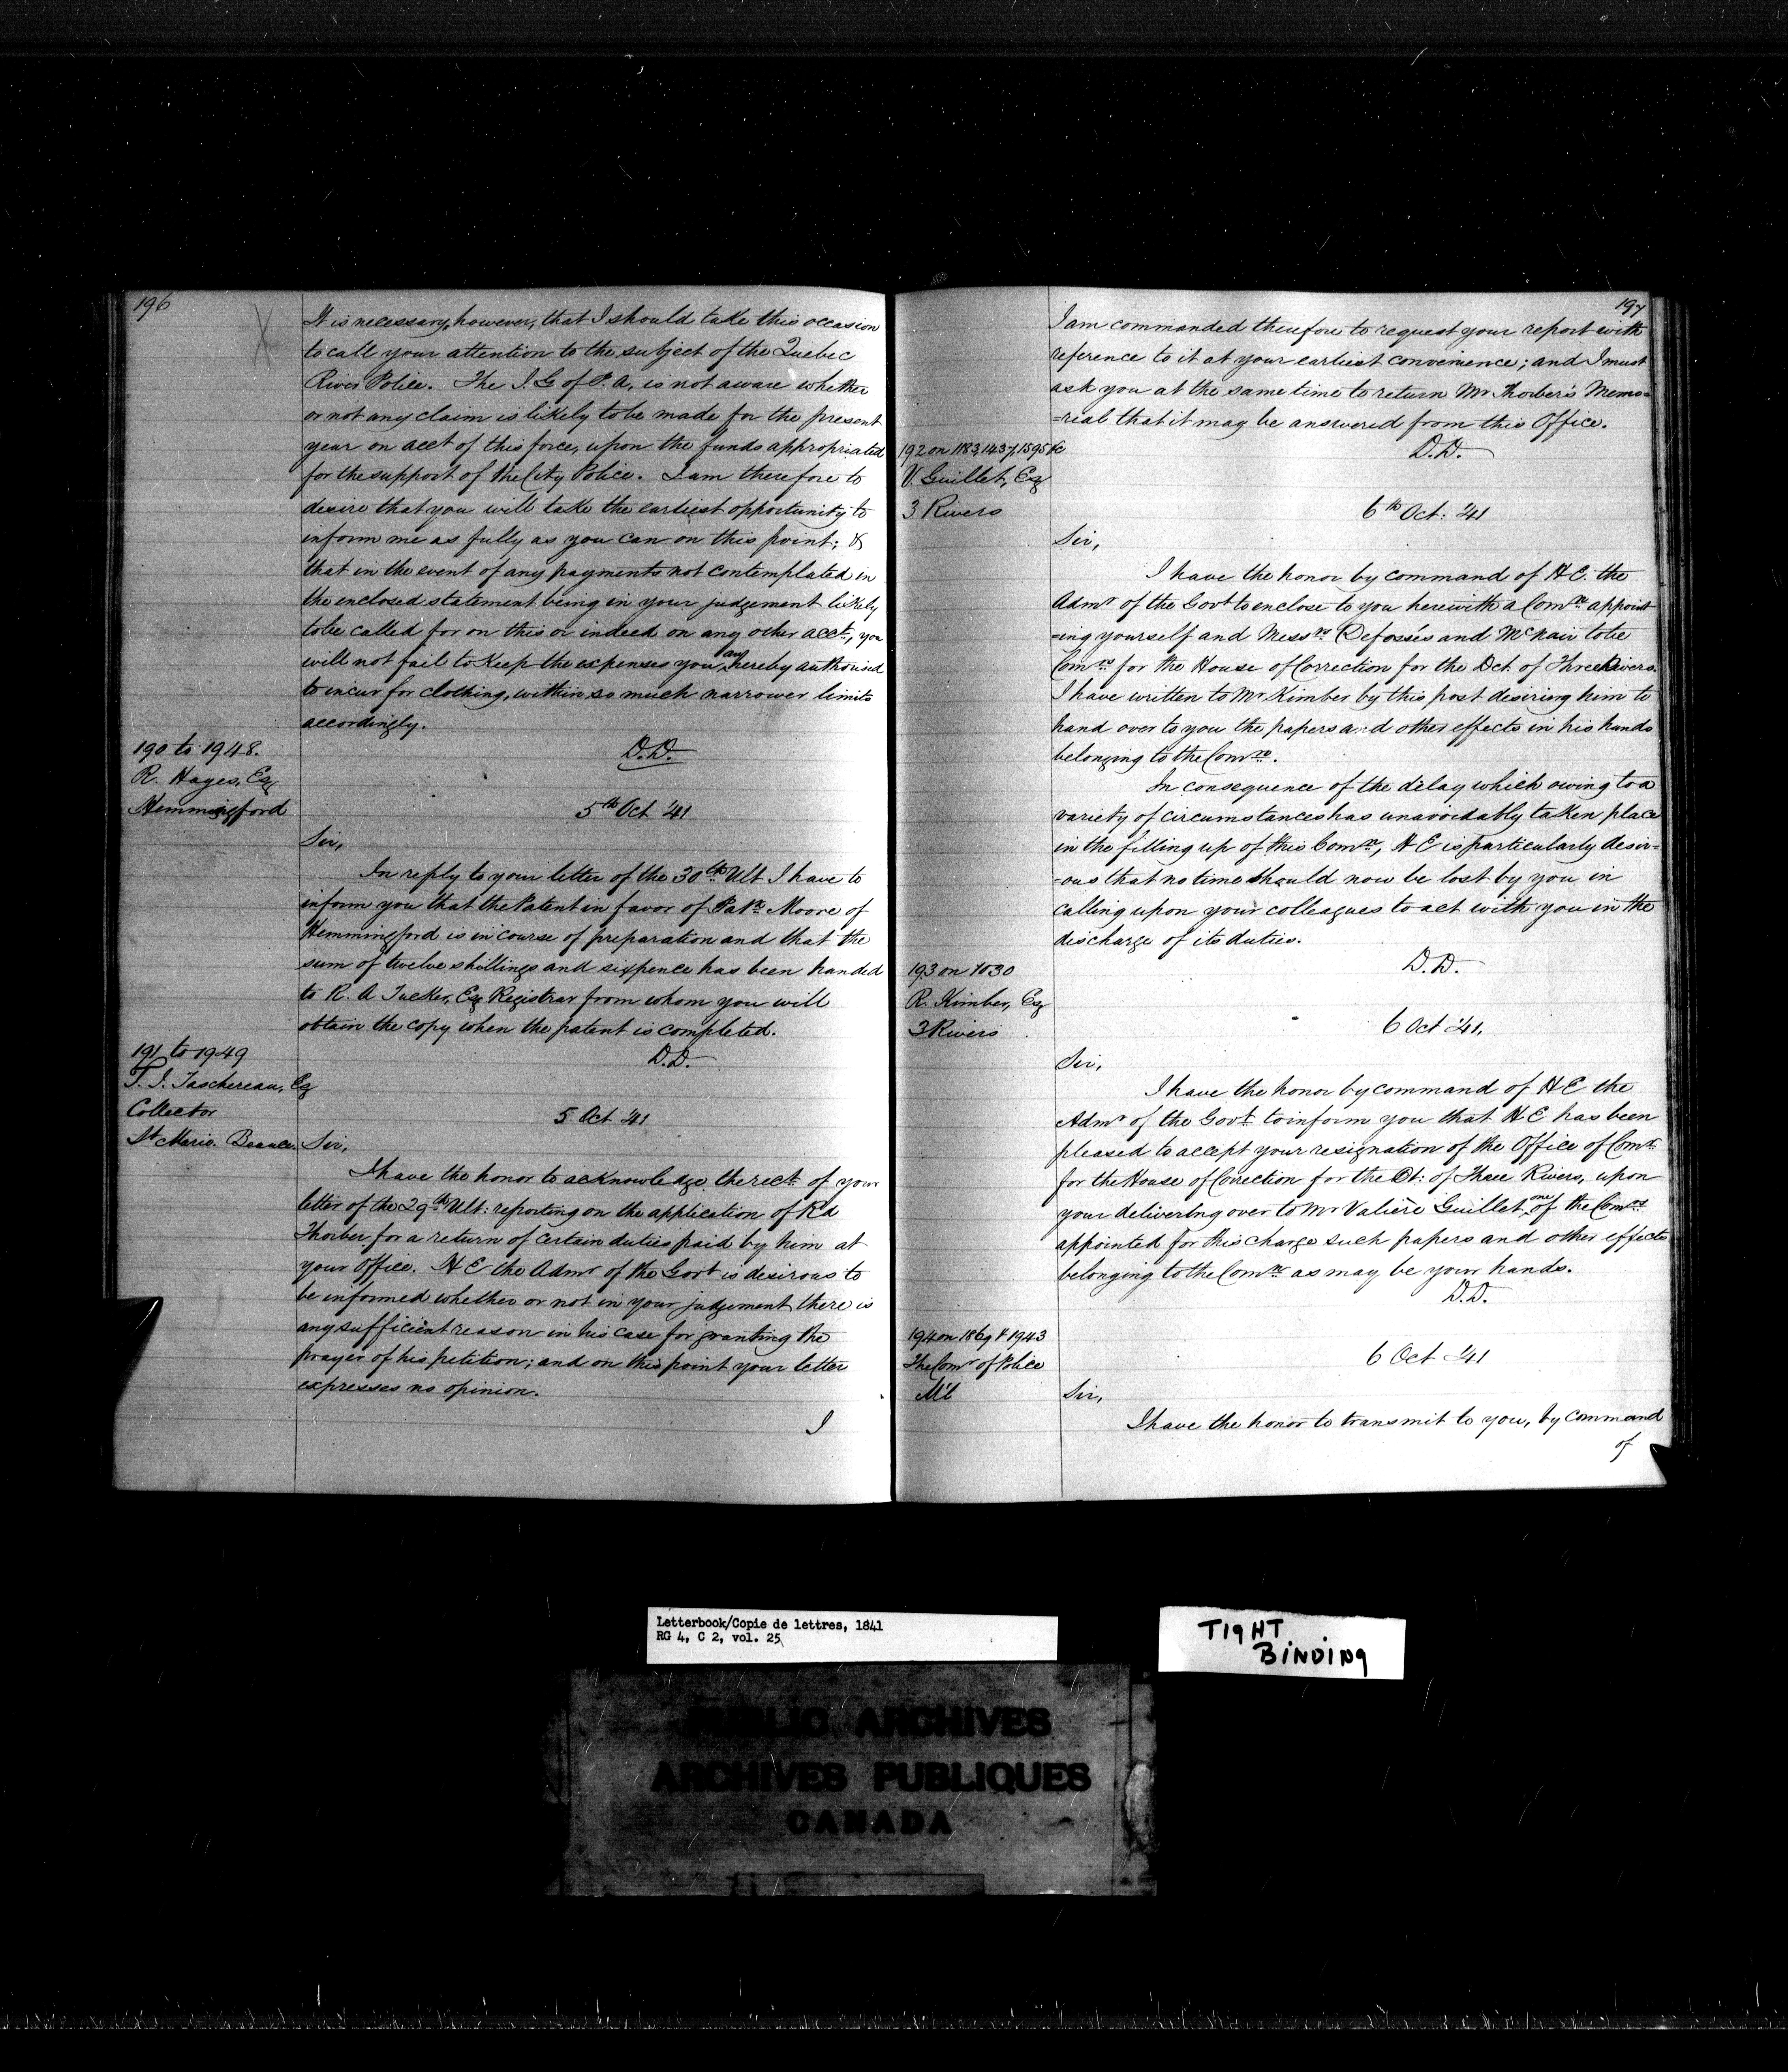 196
It is necessary, however, that I should take this occasion
to call your attention to the subject of the Quebec
River Police. The I. G of P. A, is not aware whether
or not any claim is likely to be made for the present
year on acct of this force, upon the funds appropriated
for the support of the City Police. I am therefore to
desire that you will take the earliest opportunity to
inform me as fully as you can on this point; &
that in the event of any payments not contemplated in
the enclosed statement being in your judgement likely
to be called for on this or indeed on any other acct, you
will not fail to keep the expenses you are hereby authorised
to incur for clothing, within so much narrower limits
accordingly.
D.D.
190 to 1948.
R. Hayes, Esq
Hemmingford
5th Oct '41
Sir,
In reply to your letter of the 30th Ult I have to
inform you that the Patent in favor of Patk Moore of
Hemmingford is in course of preparation and that the
sum of twelve shillings and sixpence has been handed
to R. A Tucker, Esq Registrar from whom you will
obtain the copy when the patent is completed.
D.D.
191 to 1949
T. J. Taschereau, Esq
Collector
St Marie. Beauce
5 Oct '41
Sir,
I have the honor to acknowledge the rect of your
letter of the 29th Ult: reporting on the application of Rd
Thorber for a return of certain duties paid by him at
your Office. H E the Admr of the Govt is desirous to
be informed whether or not in your judgement there is
any sufficient reason in his case for granting the
prayer of his petition; and on this point your letter
expresses no opinion.
I
197
I am commanded therefore to request your report with
reference to it at your earliest convenience; and I must
ask you at the same time to return Mr Thorber's Memo=
=rial that it may be answered from this Office.
D.D.
192 on 1183, 1437, 1595 &c
V. Guillet, Esq
3 Rivers
6th Oct: '41
Sir,
I have the honor by command of H E. the
Admr of the Govt to enclose to you herewith a Comn appoint
=ing yourself and Messrs Defossés and McNair to be
Comrs for the House of Correction for the Dct of Three Rivers.
I have written to Mr Kimber by this post desiring him to
hand over to you the papers and other effects in his hands
belonging to the Comn.
In consequence of the delay which owing to a
variety of circumstances has unavoidably taken place
in the filling up of this Comn, H E is particularly desir=
=ous that no time should now be lost by you in
calling upon your colleagues to act with you in the
discharge of its duties.
D.D.
193 on 1030
R. Kimber, Esq
3 Rivers
6 Oct '41.
Sir,
I have the honor by command of H E the
Admr of the Govt to inform you that H E has been
pleased to accept your resignation of the Office of Comr
for the House of Correction for the Dt: of Three Rivers, upon
your delivering over to Mr Valière Guillet one of the Comrs
appointed for this charge such papers and other effects
belonging to the Comn as may be your hands.
D.D.
194 on 1869 & 1943
The Comr of Police
M'l
6 Oct '41
Sir,
I have the honor to transmit to you, by command
of
Letterbook/Copie de lettres, 1841
RG 4, C 2, vol. 25
TIGHT
BINDING
PUBLIC ARCHIVES
ARCHIVES PUBLIQUES
CANADA